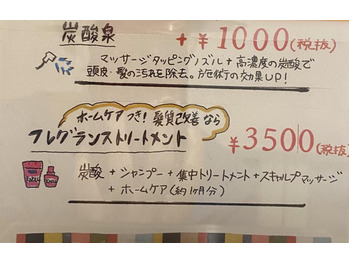 炭酸泉 + ¥1000(税抜)
マッサージタッピングノズル + 高濃度の炭酸で
頭皮・髪の汚れを除去。施術の効果UP!
ホームケアつき! 髪質改善なら
フレグランストリートメント ¥3500(税抜)
炭酸 + シャンプー + 集中トリートメント + スキャルプマッサージ
+ ホームケア (約1ヶ月分)